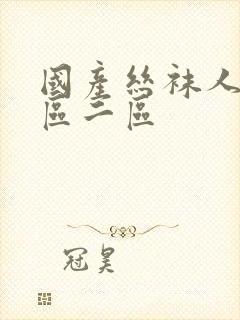 國產絲袜人
區二區
冠昊